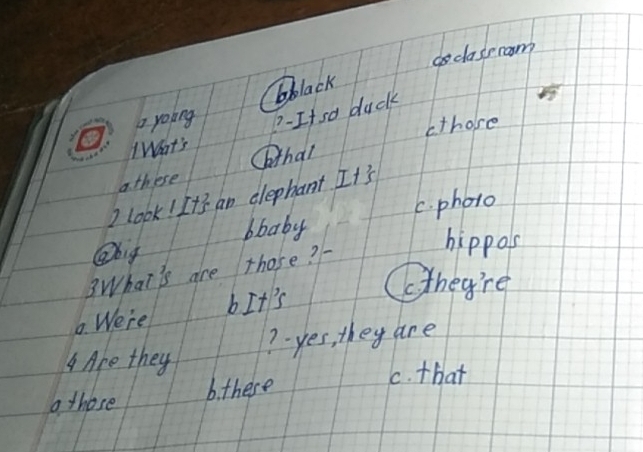 a young b black c classroom
1 What's ?-It's a duck
a these b that c those
2 look! It's an elephant It's
a big b.baby c.photo
3 What's are those?- hippos
a. We're b It's c. they're
4 Are they ?-yes, they are
a. those b.these c. that